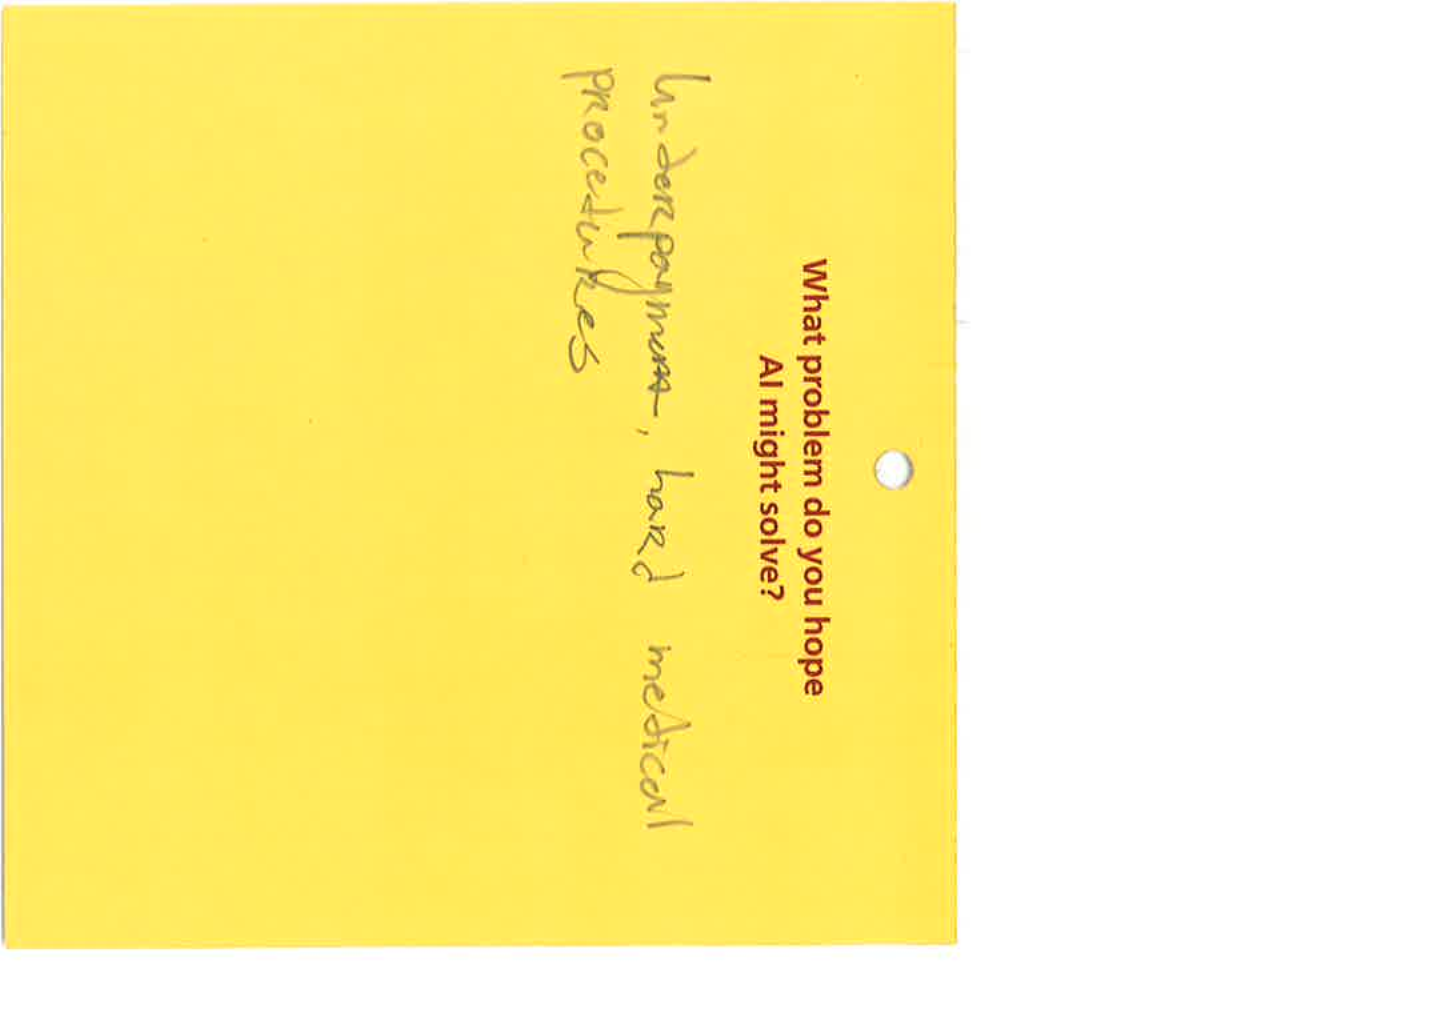 What problem do you hope
AI might solve?
Underpayment, hard medical
procedures